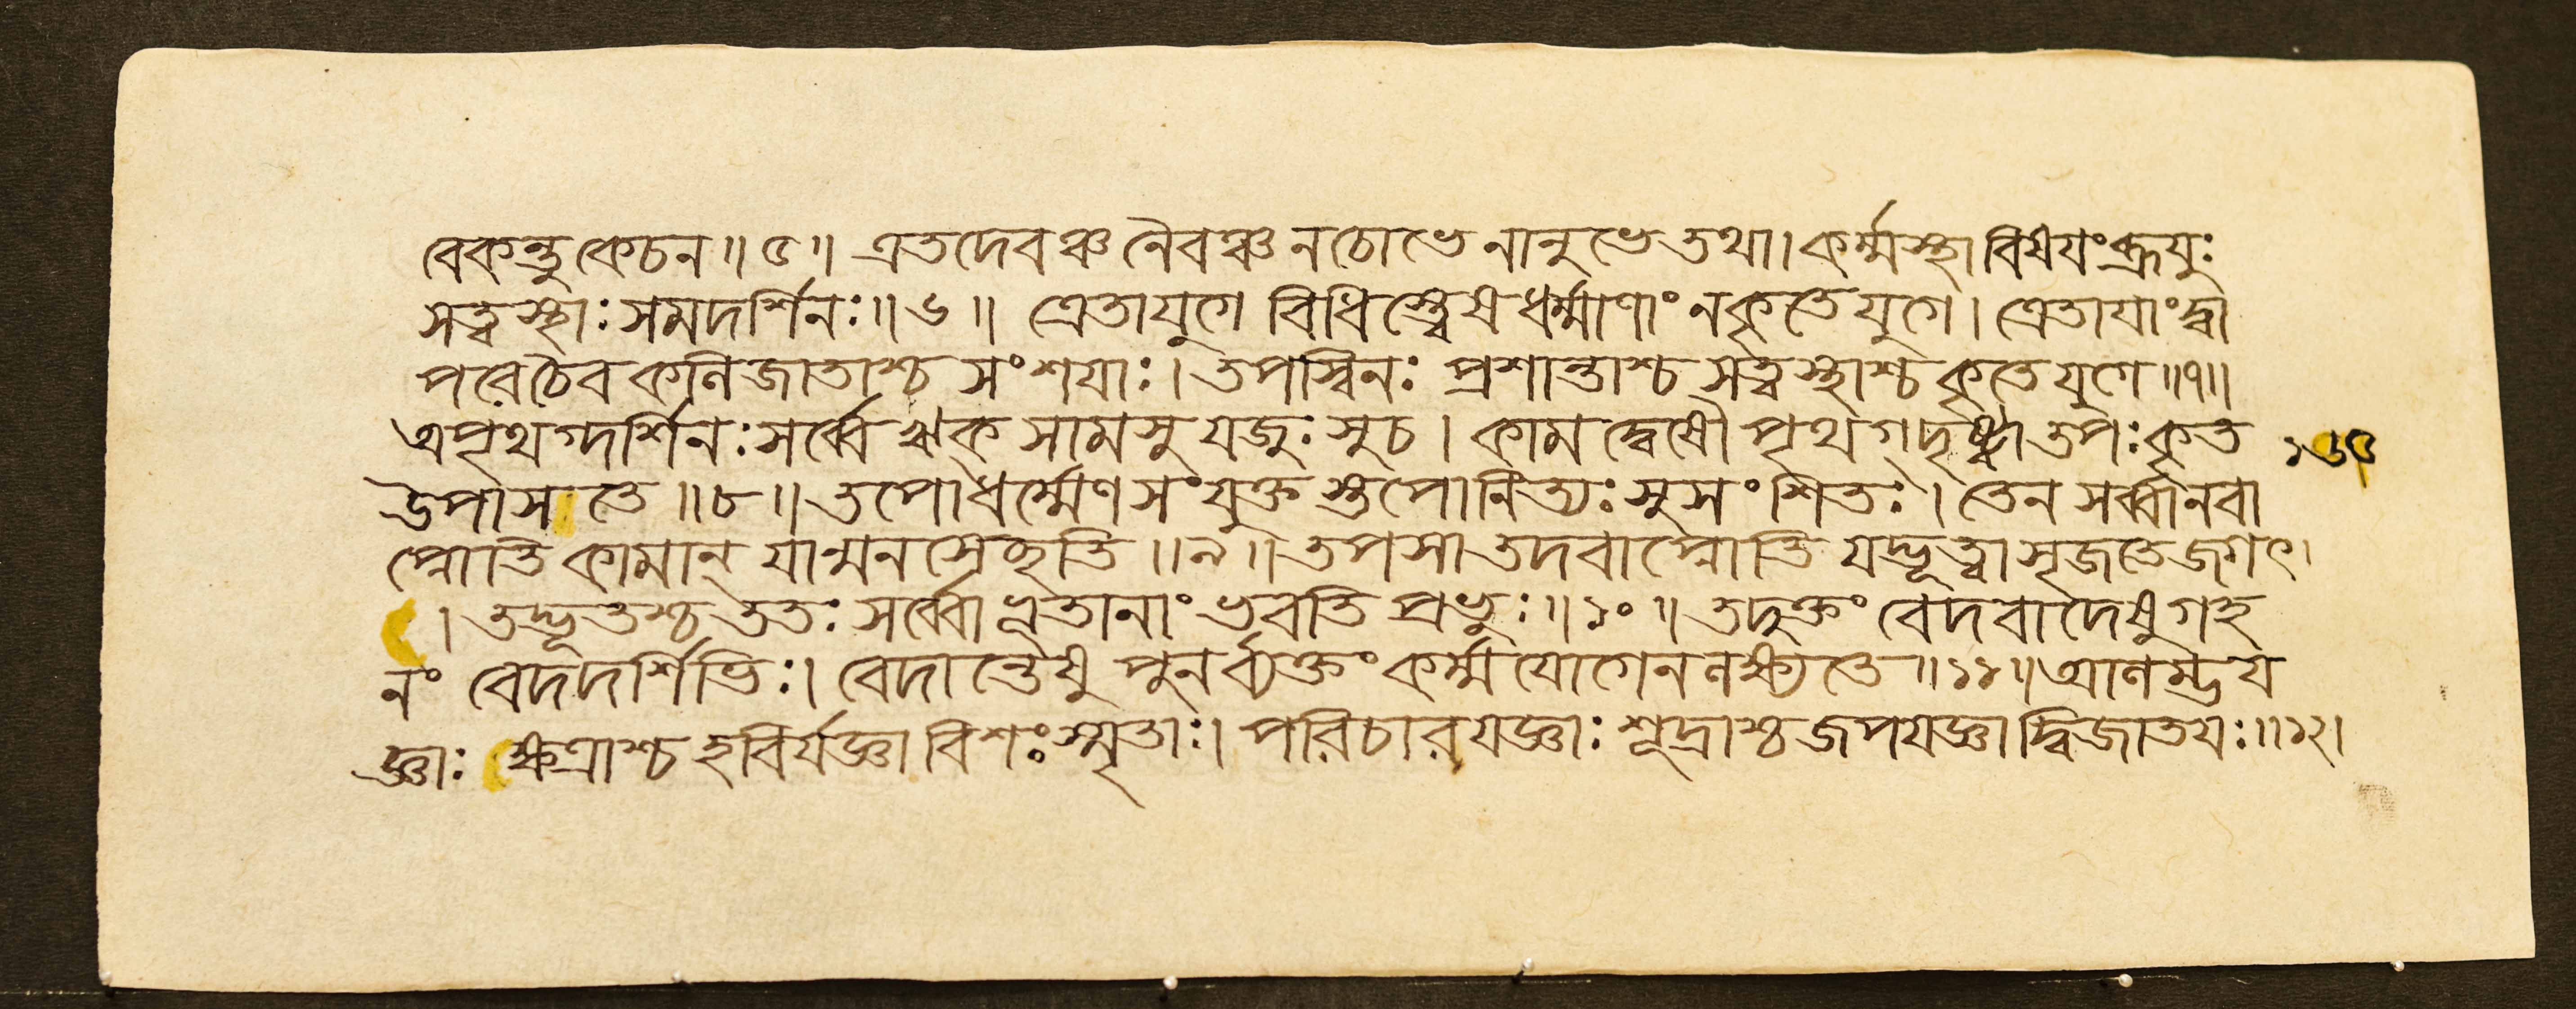 বেকন্তুকেচন॥৫॥ এতদেবঞ্চ নৈবঞ্চ নচোভে নানুভে তথা। কর্ম্মস্থা বিষযং ব্রূযুঃ
সত্ত্বস্থাঃ সমদর্শিনঃ॥৬॥ ত্রেতাযুগে বিধিস্ত্বেষ ধর্ম্মাণাং নকৃতে যুগে। ত্রেতাযাং দ্বা
পরে চৈব কলিজাতাশ্চ সংশযাঃ। তপস্বিনঃ প্রশান্তাশ্চ সত্ত্বস্থাশ্চ কৃতে যুগে॥৭॥
অপৃথগ্দর্শিনঃ সর্ব্বে ঋক্ সামসু যজুঃসু চ। কামদ্বেষৌ পৃথগ্ দৃষ্ট্বা তপঃ কৃত ১৬৫
উপাসতে॥৮॥ তপোধর্ম্মেণ সংযুক্তস্তপোনিত্যঃ সুসংশিতঃ। তেন সর্ব্বানবা
প্নোতি কামান্ যান্মনসেহৃতি॥৯॥ তপসা তদবাপ্নোতি যদ্ভূত্বা সৃজতে জগৎ।
। তদ্ভূতশ্চ ততঃ সর্ব্বো ভূতানাং ভবতি প্রভুঃ॥১০॥ তদুক্তং বেদবাদেষু গহ
নং বেদদর্শিভিঃ। বেদান্তেষু পুনর্ব্যক্তং কর্ম্মযোগেন লক্ষ্যতে॥১১॥ আলম্ভয
জ্ঞাঃ ক্ষত্রাশ্চ হবির্যজ্ঞা বিশঃ স্মৃতাঃ। পরিচারযজ্ঞাঃ শূদ্রাশ্চ জপযজ্ঞা দ্বিজাতযঃ॥১২।